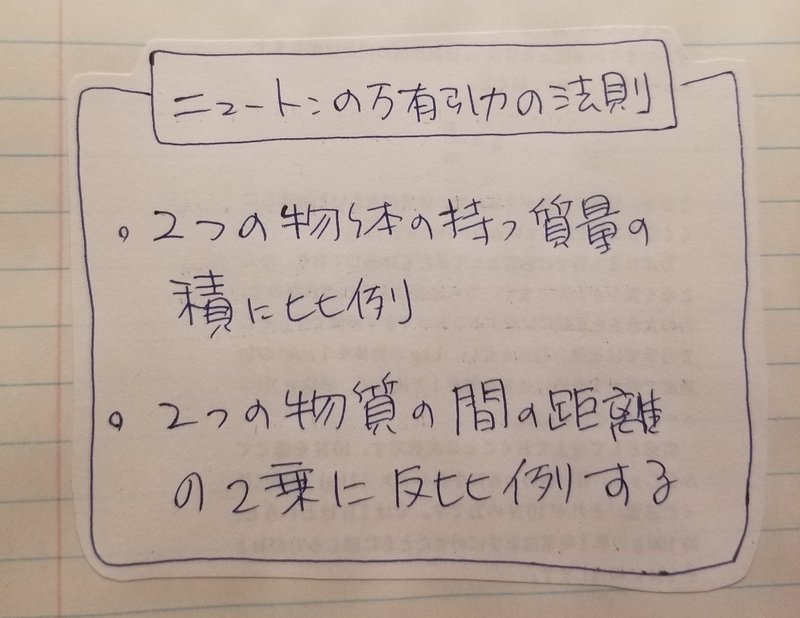 ニュートンの万有引力の法則
。2つの物体の持つ質量の
積に比例
。2つの物質の間の距離
の2乗に反比例する